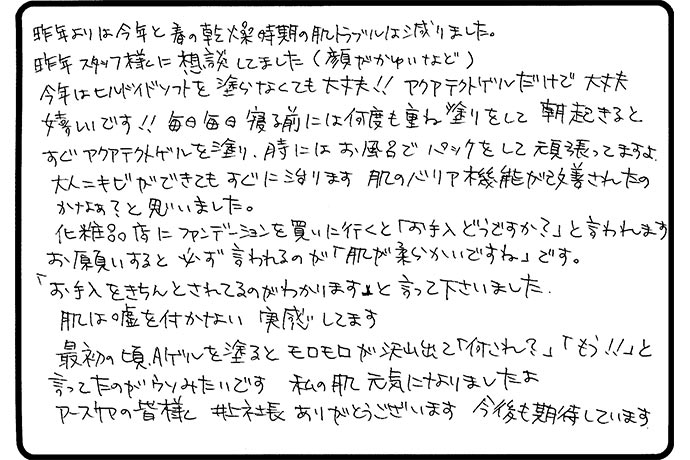 昨年よりは今年と春の乾燥時期の肌トラブルは減りました。
昨年スタッフ様に想談してました(顔がかゆいなど)
今年はヒルドイドソフトを塗らなくても大丈夫!! アクアテクトゲルだけで大丈夫
嬉しいです!! 毎日毎日寝る前には何度も重ね塗りをして 朝起きると
すぐアクアテクトゲルを塗り、時にはお風呂でパックをして頑張ってますよ
大人ニキビができてもすぐに治ります 肌のバリア機能が改善されたの
かなぁ?と思いました。
化粧品店にファンデーションを買いに行くと「お手入どうですか?」と言われます
お願いすると必ず言われるのが「肌が柔らかいですね」です。
「お手入をきちんとされてるのがわかります」と言って下さいました.
肌は嘘を付かない 実感してます
最初の頃、Aゲルを塗るとモロモロが沢山出て「何これ?」「もう!!」と
言ってたのがウソみたいです 私の肌元気になりましたよ
アースケアの皆様と 井上社長ありがとうございます 今後も期待しています